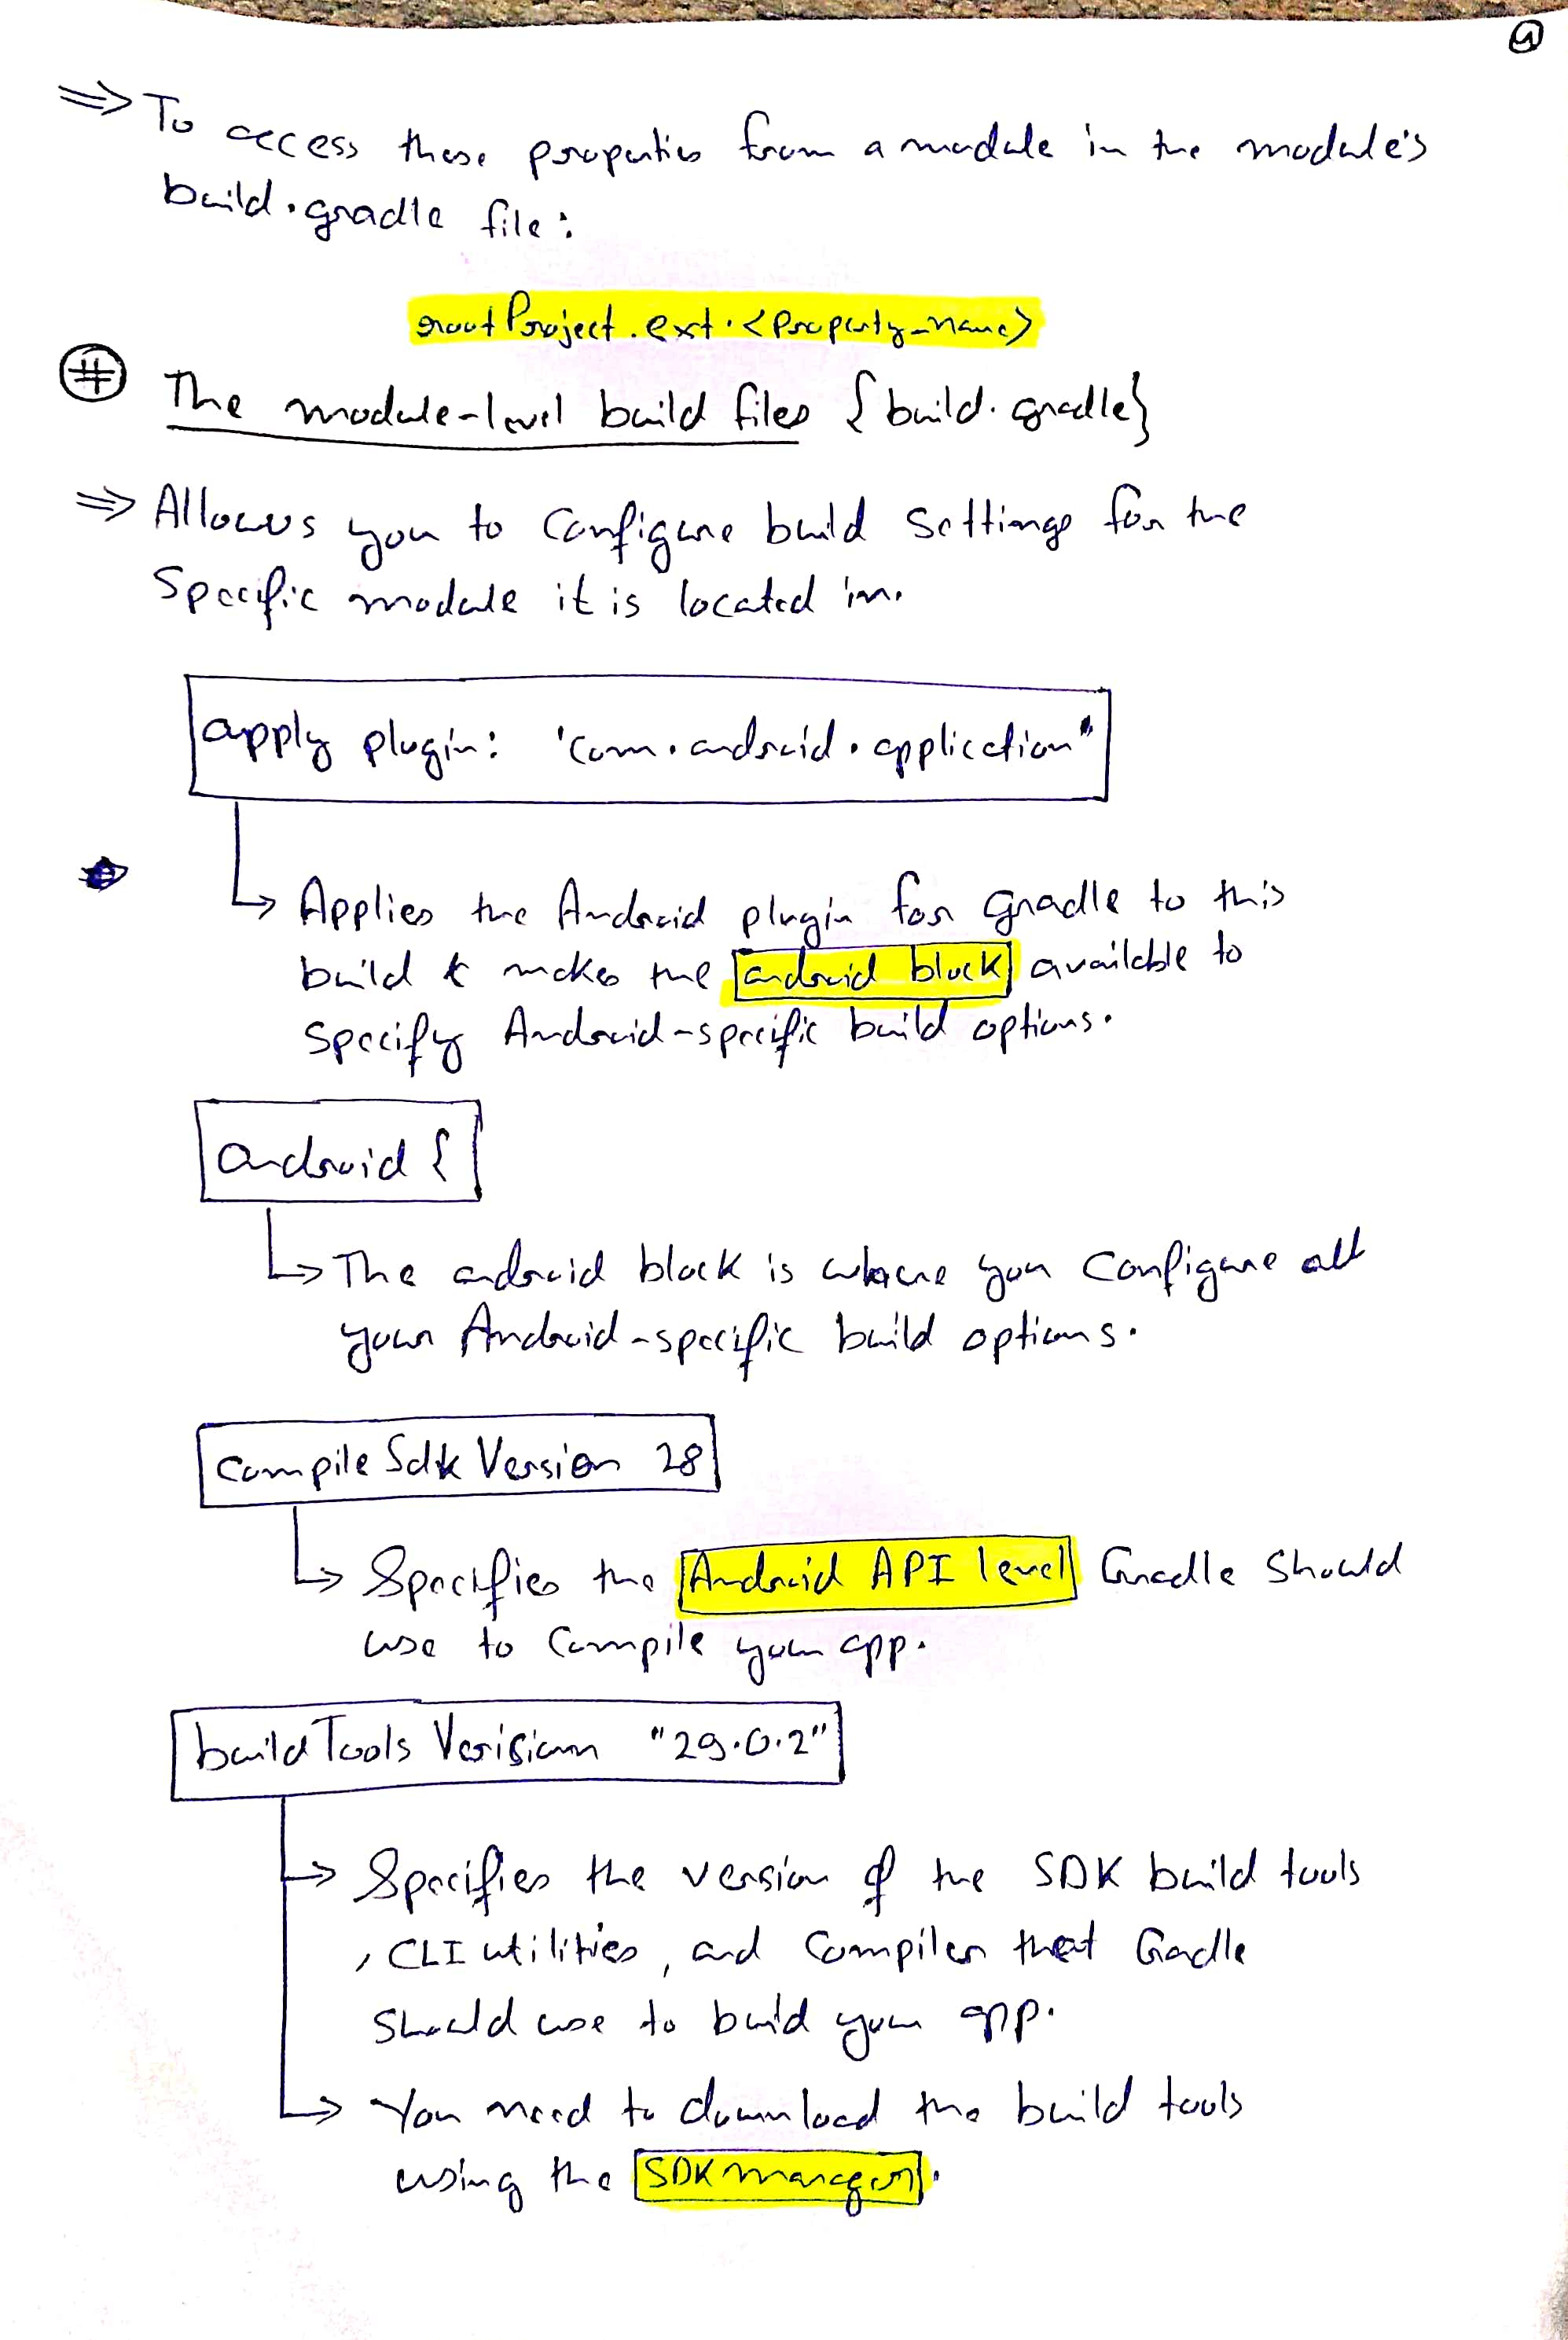 ⇒ To access these properties from a module in the module's
build.gradle file:
rootProject.ext.<property_name>
# The module-level build files {build.gradle}
⇒ Allows you to configure build settings for the
specific module it is located in.
apply plugin: 'com.android.application"
↳ Applies the Android plugin for gradle to this
build & makes the android block available to
specify Android-specific build options.
android {
↳ The android block is where you configure all
your Android-specific build options.
compileSdkVersion 28
↳ Specifies the Android API level Gradle should
use to compile your app.
buildToolsVerision "29.0.2"
→ Specifies the version of the SDK build tools
, CLI utilities, and compiler that Gradle
should use to build your app.
↳ You need to download the build tools
using the SDK manager.